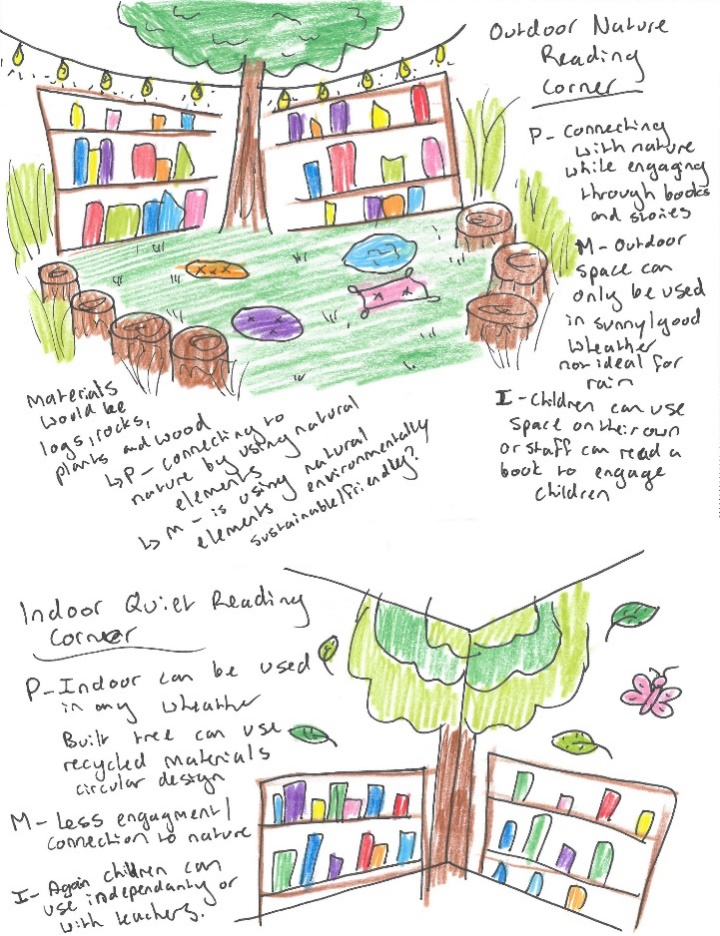 Outdoor Nature
Reading
Corner
P - Connecting
with nature
while engaging
through books
and stories
M - Outdoor
space can
only be used
in sunny/good
wheather
not ideal for
rain
I - Children can use
space on their own
or staff can read a
book to engage
children
Materials
would be
logs, rocks,
plants and wood
↳ P - connecting to
nature by using natural
elements
↳ M - is using natural
elements environmentally
sustainable/friendly?
Indoor Quiet Reading
Corner
P - Indoor can be used
in any wheather
Built tree can use
recycled materials
circular design
M - Less engagment/
connection to nature
I - Again children can
use independantly or
with teachers.